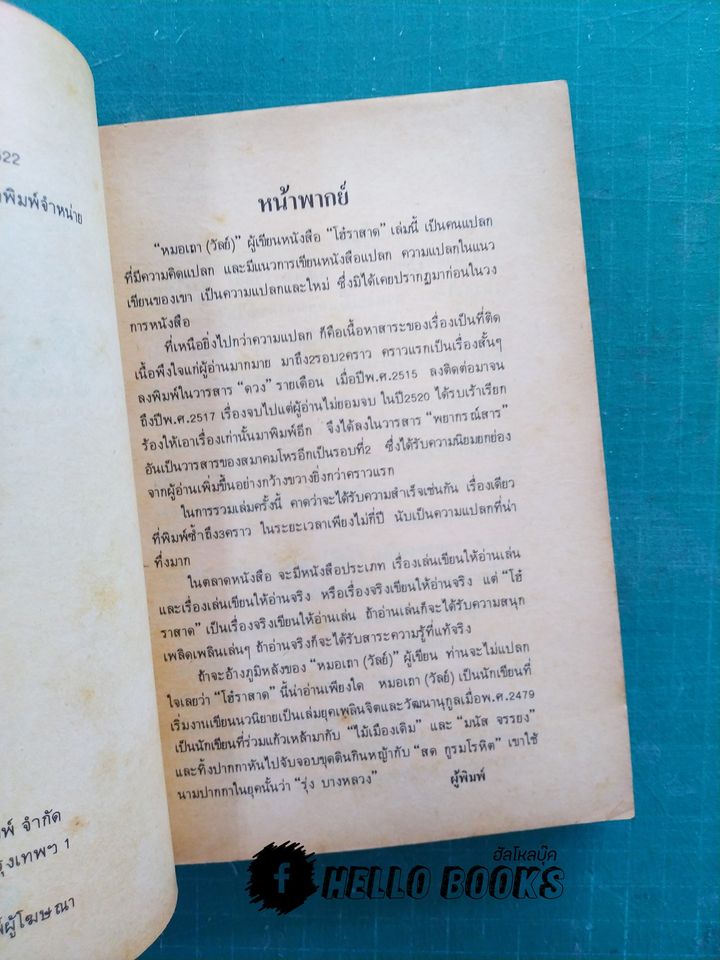 522
พิมพ์จำหน่าย
พ์ จำกัด
รุงเทพฯ 1
ผู้โฆษณา
หน้าพากย์
"หมอเถา (วัลย์)" ผู้เขียนหนังสือ "โฮ๋ราสาด" เล่มนี้ เป็นคนแปลก
ที่มีความคิดแปลก และมีแนวการเขียนหนังสือแปลก ความแปลกในแนว
เขียนของเขา เป็นความแปลกและใหม่ ซึ่งมิได้เคยปรากฏมาก่อนในวง
การหนังสือ
ที่เหนือยิ่งไปกว่าความแปลก ก็คือเนื้อหาสาระของเรื่องเป็นที่ติด
เนื้อพึงใจแก่ผู้อ่านมากมาย มาถึง2รอบ2คราว คราวแรกเป็นเรื่องสั้นๆ
ลงพิมพ์ในวารสาร "ดวง" รายเดือน เมื่อปีพ.ศ.2515 ลงติดต่อมาจน
ถึงปีพ.ศ.2517 เรื่องจบไปแต่ผู้อ่านไม่ยอมจบ ในปี2520 ได้รบเร้าเรียก
ร้องให้เอาเรื่องเก่านั้นมาพิมพ์อีก จึงได้ลงในวารสาร "พยากรณ์สาร"
อันเป็นวารสารของสมาคมโหรอีกเป็นรอบที่2 ซึ่งได้รับความนิยมยกย่อง
จากผู้อ่านเพิ่มขึ้นอย่างกว้างขวางยิ่งกว่าคราวแรก
ในการรวมเล่มครั้งนี้ คาดว่าจะได้รับความสำเร็จเช่นกัน เรื่องเดียว
ที่พิมพ์ซ้ำถึง3คราว ในระยะเวลาเพียงไม่กี่ปี นับเป็นความแปลกที่น่า
ทึ่งมาก
ในตลาดหนังสือ จะมีหนังสือประเภท เรื่องเล่นเขียนให้อ่านเล่น
และเรื่องเล่นเขียนให้อ่านจริง หรือเรื่องจริงเขียนให้อ่านจริง แต่ "โฮ๋
ราสาด" เป็นเรื่องจริงเขียนให้อ่านเล่น ถ้าอ่านเล่นก็จะได้รับความสนุก
เพลิดเพลินเล่นๆ ถ้าอ่านจริงก็จะได้รับสาระความรู้ที่แท้จริง
ถ้าจะอ้างภูมิหลังของ "หมอเถา (วัลย์)" ผู้เขียน ท่านจะไม่แปลก
ใจเลยว่า "โฮ๋ราสาด" นี้น่าอ่านเพียงใด หมอเถา (วัลย์) เป็นนักเขียนที่
เริ่มงานเขียนนวนิยายเป็นเล่มยุคเพลินจิตและวัฒนานุกูลเมื่อพ.ศ.2479
เป็นนักเขียนที่ร่วมแก้วเหล้ามากับ "ไม้เมืองเดิม" และ "มนัส จรรยง"
และทิ้งปากกาหันไปจับจอบขุดดินกินหญ้ากับ "สด กูรมะโรหิต" เขาใช้
นามปากกาในยุคนั้นว่า "รุ่ง บางหลวง"
ผู้พิมพ์
ฮัลโหลบุ๊ค
f HELLO BOOKS